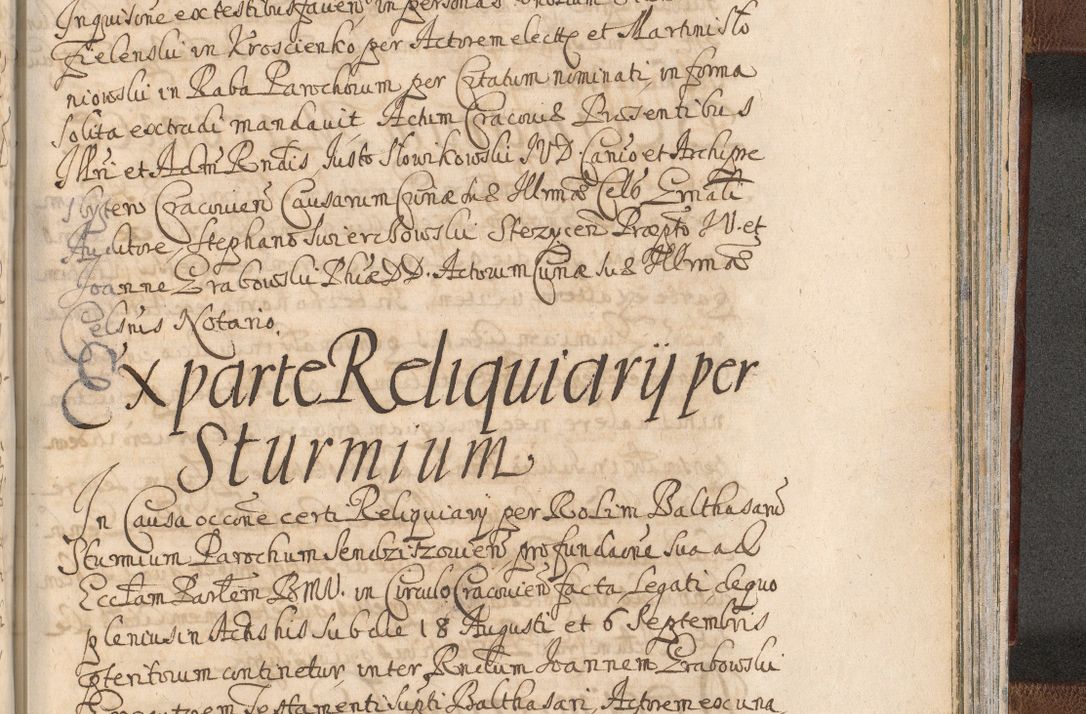 Inquisitione ex testibus faven in personas
Zielenski in Kroscienko per Actorem elect et Martini Slo
niowski in Raba Parochorum per Citatum nominati, in forma
solita extradi mandavit Actum Cracoviæ Præsentibus
Illri et Adm Rndis Justo Slowikowski JVD. Canco et Archipre
sbytero Cracovien Causarum Curiæ suæ Illrmæ Cels Grnali
Auditore, Stephano Swierchowski Stezycen Præpto JV. et
Joanne Grabowski Phiæ DD. Actorum Curiæ suæ Illrmæ
Celsnis Notario.
Ex parte Reliquiarij per
Sturmium.
In Causa occone certi Reliquiarij per Rolim Balthasaru
Sturmium Parochum Sendziszovien pro fundaone sua ad
Ecclam Parlem BMV. in Circulo Cracovien facta Legati de quo
plenius in Actis his sub die 18 Augusti et 6 Septembris
pteritorum continetur, inter Rndum Joannem Grabowski
Testamenti supti Balthasari, Actorem ex una